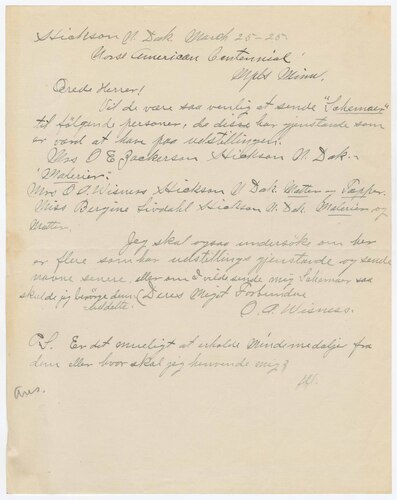 Hickson N. Dak March 25-25.
Norse American Centennial
Mpls Minn.
Ærede Herrer!
Vil de være saa venlig at sende "Schemaer"
til følgende personer, da disse har gjenstande som
er værd at han paa udstillingen.
Mrs O E Jackerson Hickson N. Dak.
"Malerier."
Mrs O. A. Wisness Hickson N Dak. Matter og Tæpper.
Miss Bergine Hickson N. Dak. Malerier og
Matter.
Jeg skal ogsaa undersøke om her
er flere som har udstillings gjenstande og sende
navne senere, eller om d vilde sende mig Schemaer saa
skulde jeg besørge dem uddelte. (Deres Meget Forbundne
O. A. Wisness.
P.S. Er det mueligt at erholde Mindemedaljer fra
dem eller hvor skal jeg henvende mig?
W.
Ans.